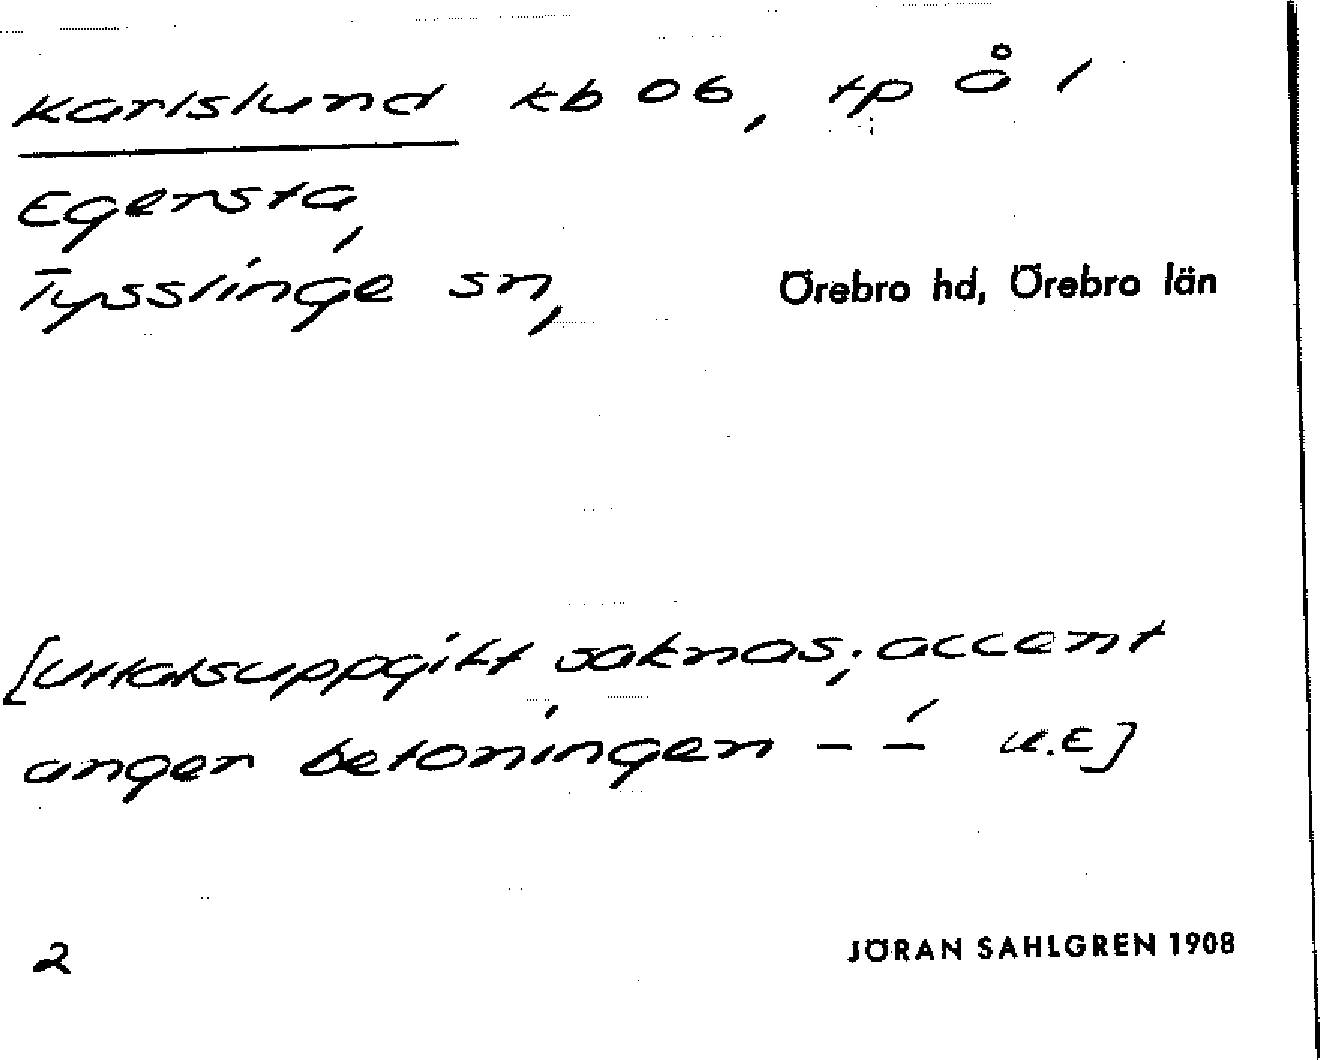 Karlslund kb 06, tp å 1
Egersta,
Tysslinge sn, Örebro hd, Örebro län
[Uttalsuppgift saknas; accent
anger betoningen – –́ u.E]
2 JÖRAN SAHLGREN 1908